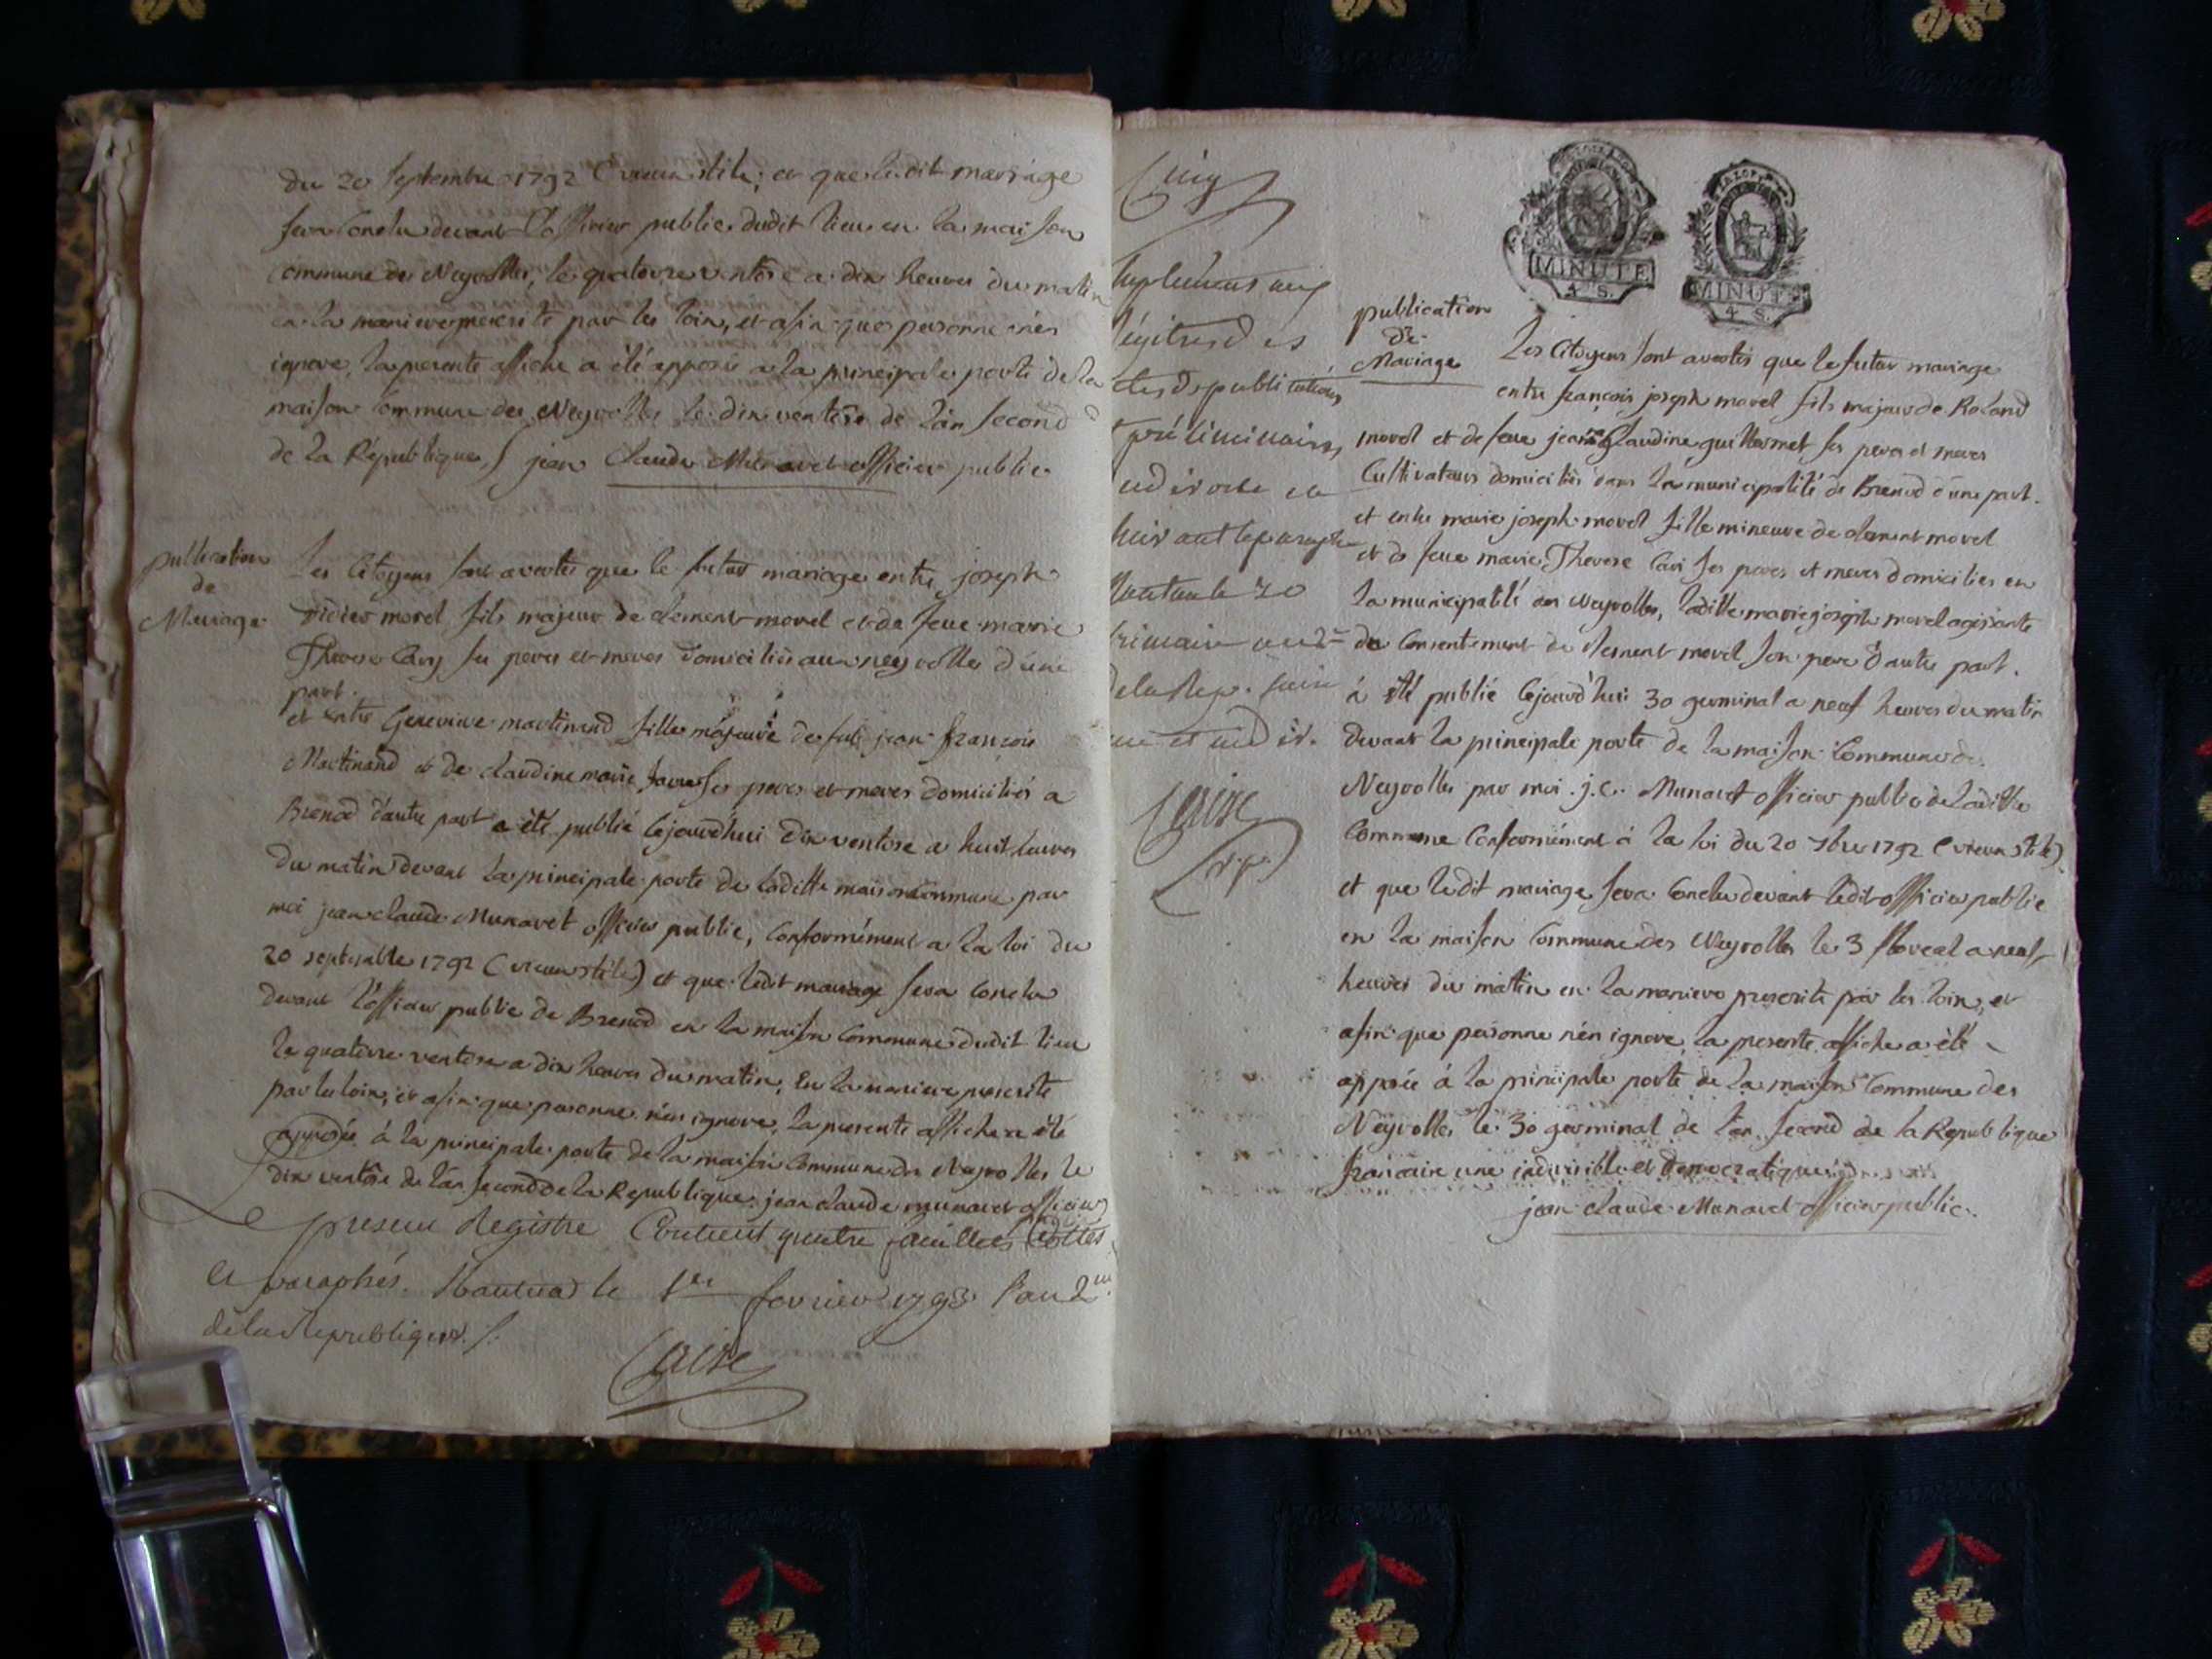 du 20 septembre 1792 (vieux stile; et que ledit mariage
sera conclu devant l'officier public dudit lieu en la maison
commune des Neyrolles, le quatorze ventose a dix heures du matin
en la maniere prescrite par les loix, et afin que personne n'en
ignore, la presente affiche a été apposée a la principale porte de la
maison commune des Neyrolles le dix ventose de l'an second
de la République, jean Claude Munaret officier public
publication
de
Mariage
Les Citoyens sont avertis que le futur mariage entre joseph
didier morel fils majeur de clement morel et de feue marie
Therese Cary ses peres et meres domiciliés aux neyrolles d'une
part.
et entre Genevieve martinand fille majeure de feu jean françois
Martinand et de claudine marie ses peres et meres domiciliés a
Brenod d'autre part a été publié cejourd'hui dix ventose a huit heures
du matin devant la principale porte de laditte maison commune par
moi jean claude Munaret officier public, conformément a la loi du
20 septembre 1792 (vieux stile) et que ledit mariage sera conclu
devant l'officier public de Brenod en la maison commune dudit lieu
le quatorze ventose a dix heures du matin, en la maniere prescrite
par les loix, et afin que personne n'en ignore, la presente affiche a été
apposée à la principale porte de la maison commune des Neyrolles le
dix ventose de l'an second de la Republique jean claude munaret officier
present Registre Contient quatre feuillets Cottés
et paraphés. Nantua le 1er fevrier 1793 l'an 2me
de la Republique.
Cinq
Supplement aux
régitres des
actes de publications
préliminaires
suivant le paraphe
Nantua le 30
de la Rep.
une et indiv.
MINUTE
4 S.
MINUTE
4 S.
publication
de
Mariage
Les Citoyens sont avertis que le futur mariage
entre françois joseph morel fils majeur de Roland
morel et de feue jeanne Claudine guillermet ses peres et meres
Cultivateurs domiciliés dans la municipalité de Brenod d'une part.
et entre marie joseph morel fille mineure de clement morel
et de feue marie Therese Cari ses peres et meres domiciliés en
la municipalité des Neyrolles, laditte marie joseph morel agissante
du consentement de clement morel son pere d'autre part.
à été publié cejourd'hui 30 germinal a neuf heures du matin
devant la principale porte de la maison commune des
Neyrolles par moi j.c. Munaret officier public de laditte
Commune Conformément à la loi du 20 7bre 1792 (vieux stile)
et que ledit mariage sera conclu devant ledit officier public
en la maison commune des Neyrolles le 3 floreal a neuf
heures du matin en la maniere prescrite par les loix, et
afin que personne n'en ignore, la presente affiche a été
apposée à la principale porte de la maison commune des
Neyrolles le 30 germinal de l'an second de la Republique
francaise une indivisible et democratique
jean claude Munaret officier public.